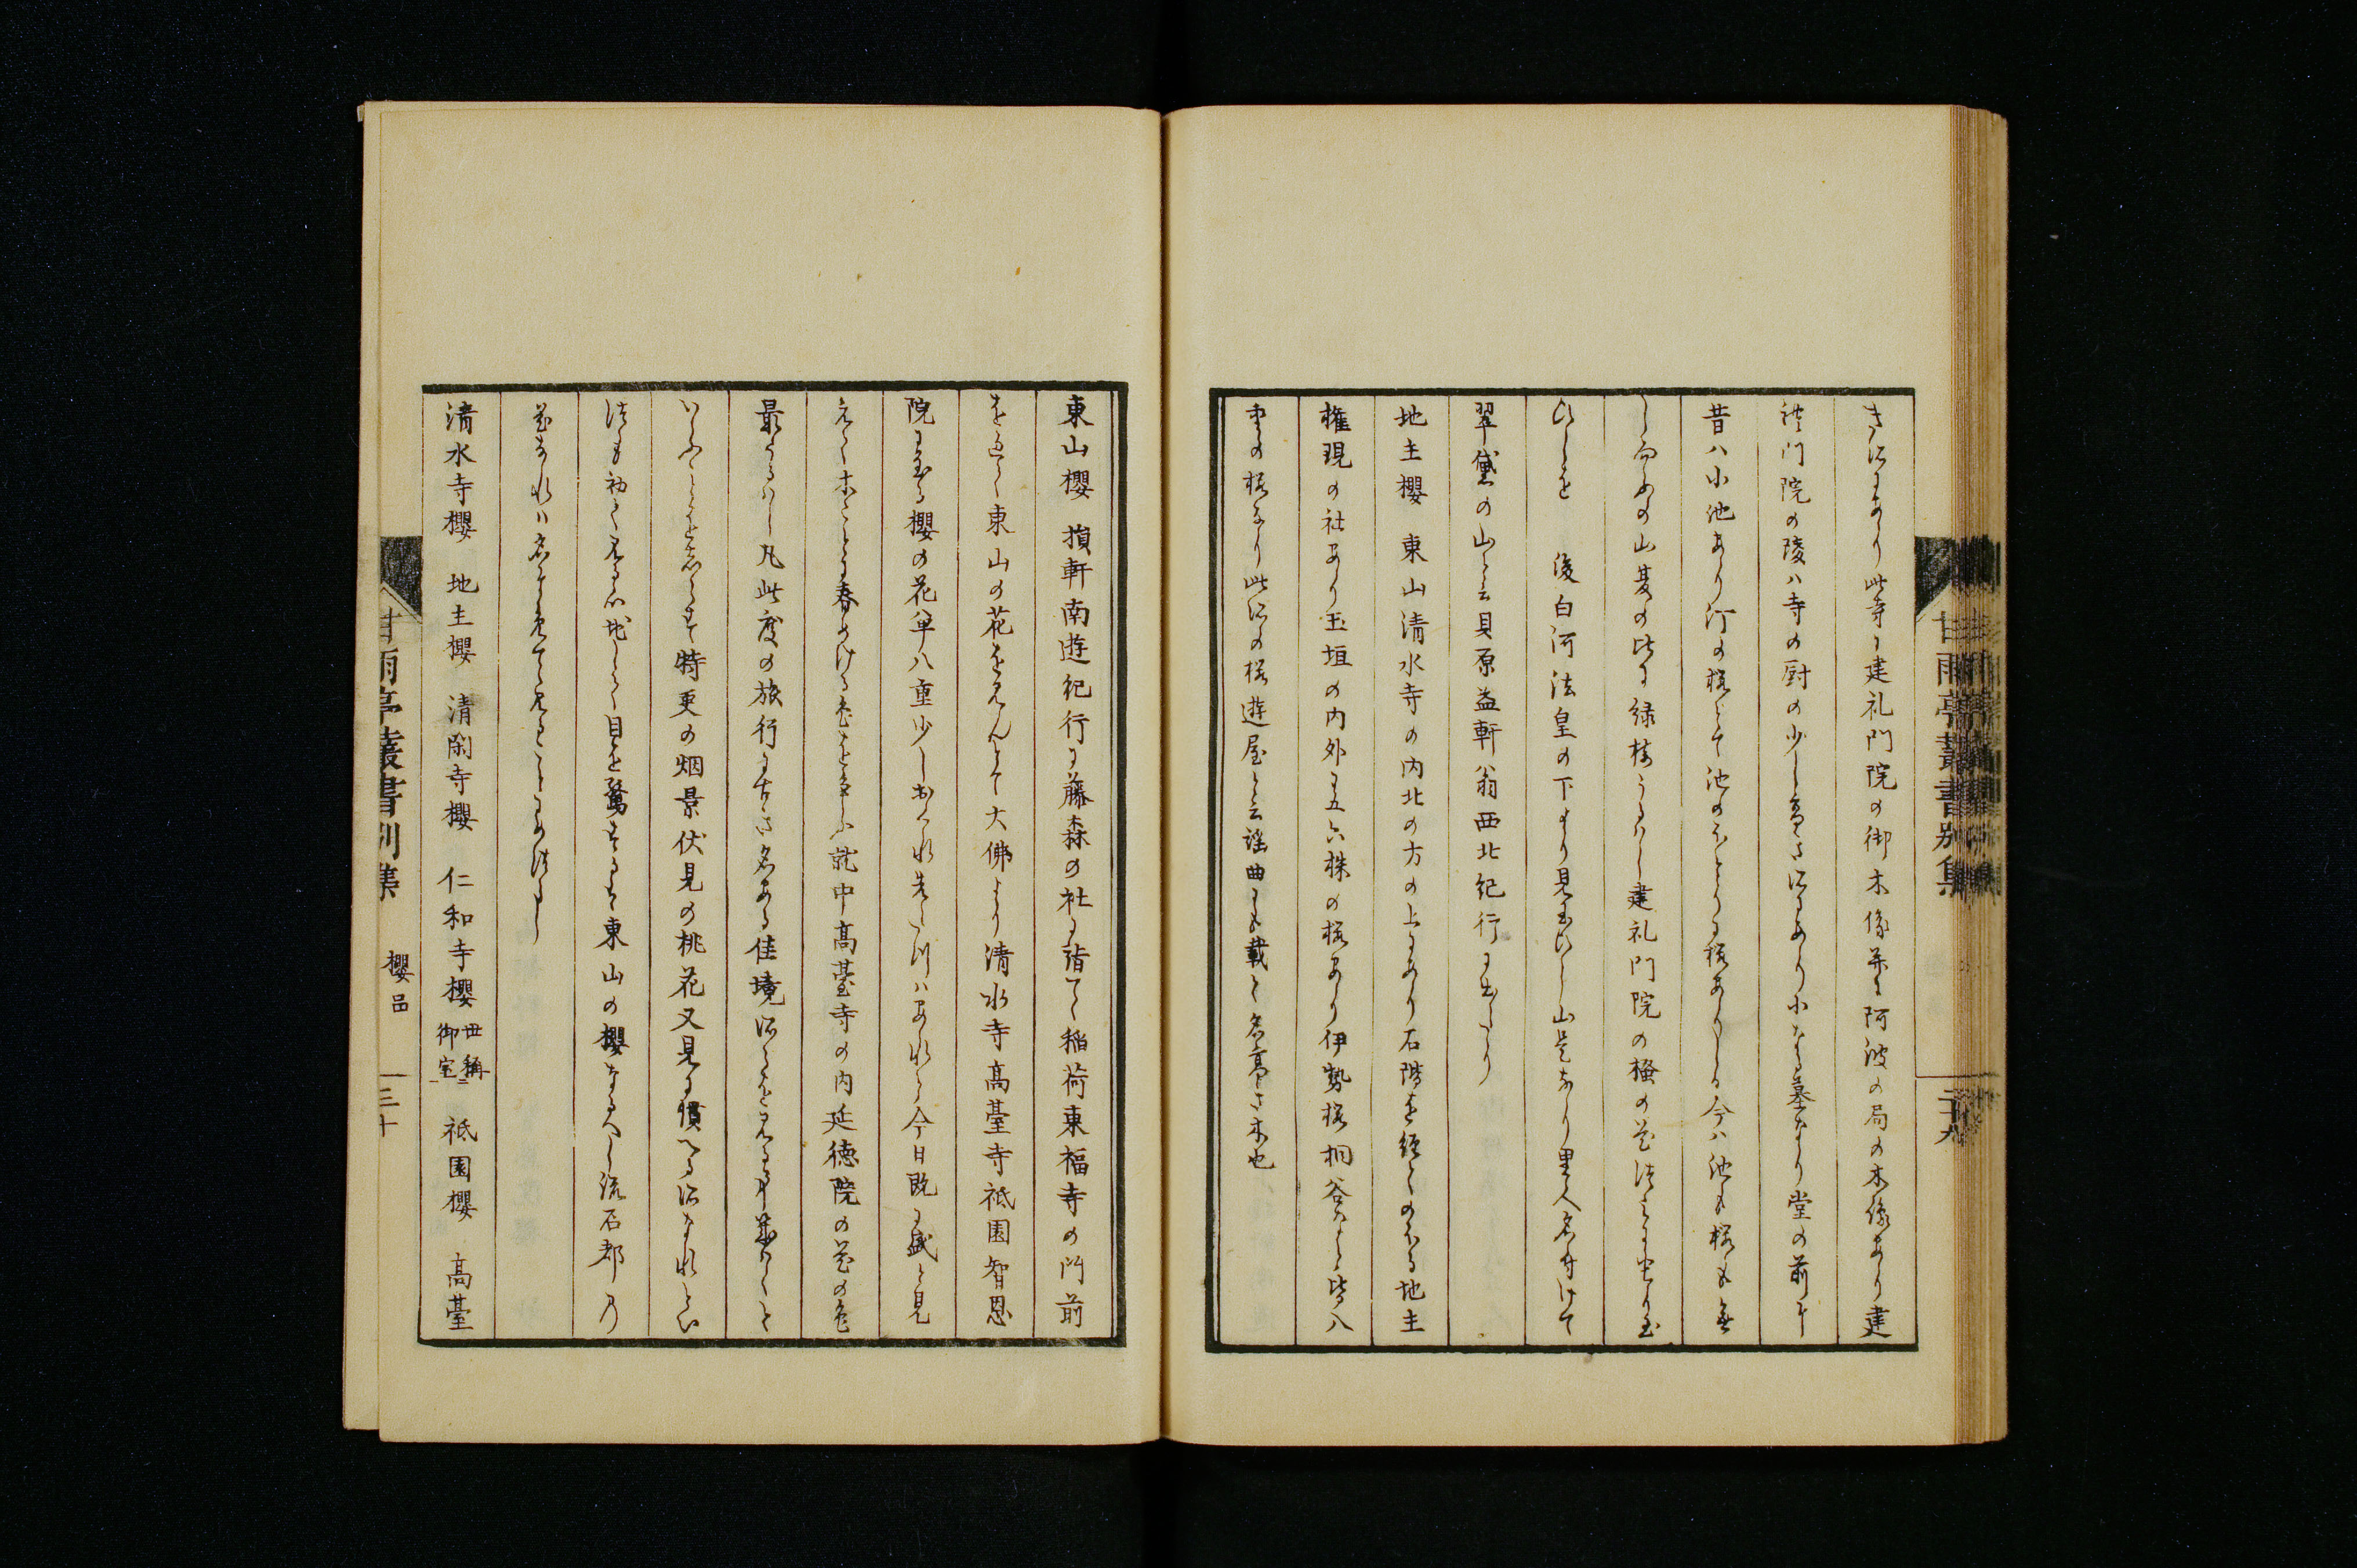 き所にあり此寺に建礼門院の御木像并に阿波の局の木像あり建
禮門院の陵ハ寺の厨の少し高き所にあり小なる墓なり堂の前に
昔ハ小池あり汀の桜とて池のほとりに桜ありしか今ハ池も桜も無
し向の山夏の比は緑樹うるハし建礼門院の
ひしを 後白河法皇の下より見玉ひし山是なり里人名付けて
翠黛の山と云貝原益軒翁西北紀行に出たり
地主櫻 東山清水寺の内北の方の上にあり石階を経てのほる地主
権現の社あり玉垣の内外に五六株の桜あり伊勢桜桐谷なと皆八
重の桜なり此所の桜遊屋と云謡曲にも載て名高き木也
甘雨亭叢書別集 二十九
東山櫻 損軒南遊紀行に藤森の社に詣て稲荷東福寺の門前
を過て東山の花を見んとて大佛より清水寺高臺寺祗園智恩
院に至る櫻の花単八重少しおくれ先たつハあれと今日既に盛と見
えて木ことに春めける色をあらふ就中高臺寺の内延徳院の花の色
最うるハし凡此度の旅行に古き名ある佳境所々を見る事
いふことをしらす特更の烟景伏見の桃花又見に慣へる所なれとい
つも初て見る心地して目を驚するは東山の櫻なるへし流石都の
花なれハ
清水寺櫻 地主櫻 清閑寺櫻 仁和寺櫻 世稱御室 祗園櫻 高臺
甘雨亭叢書別集 櫻品 三十